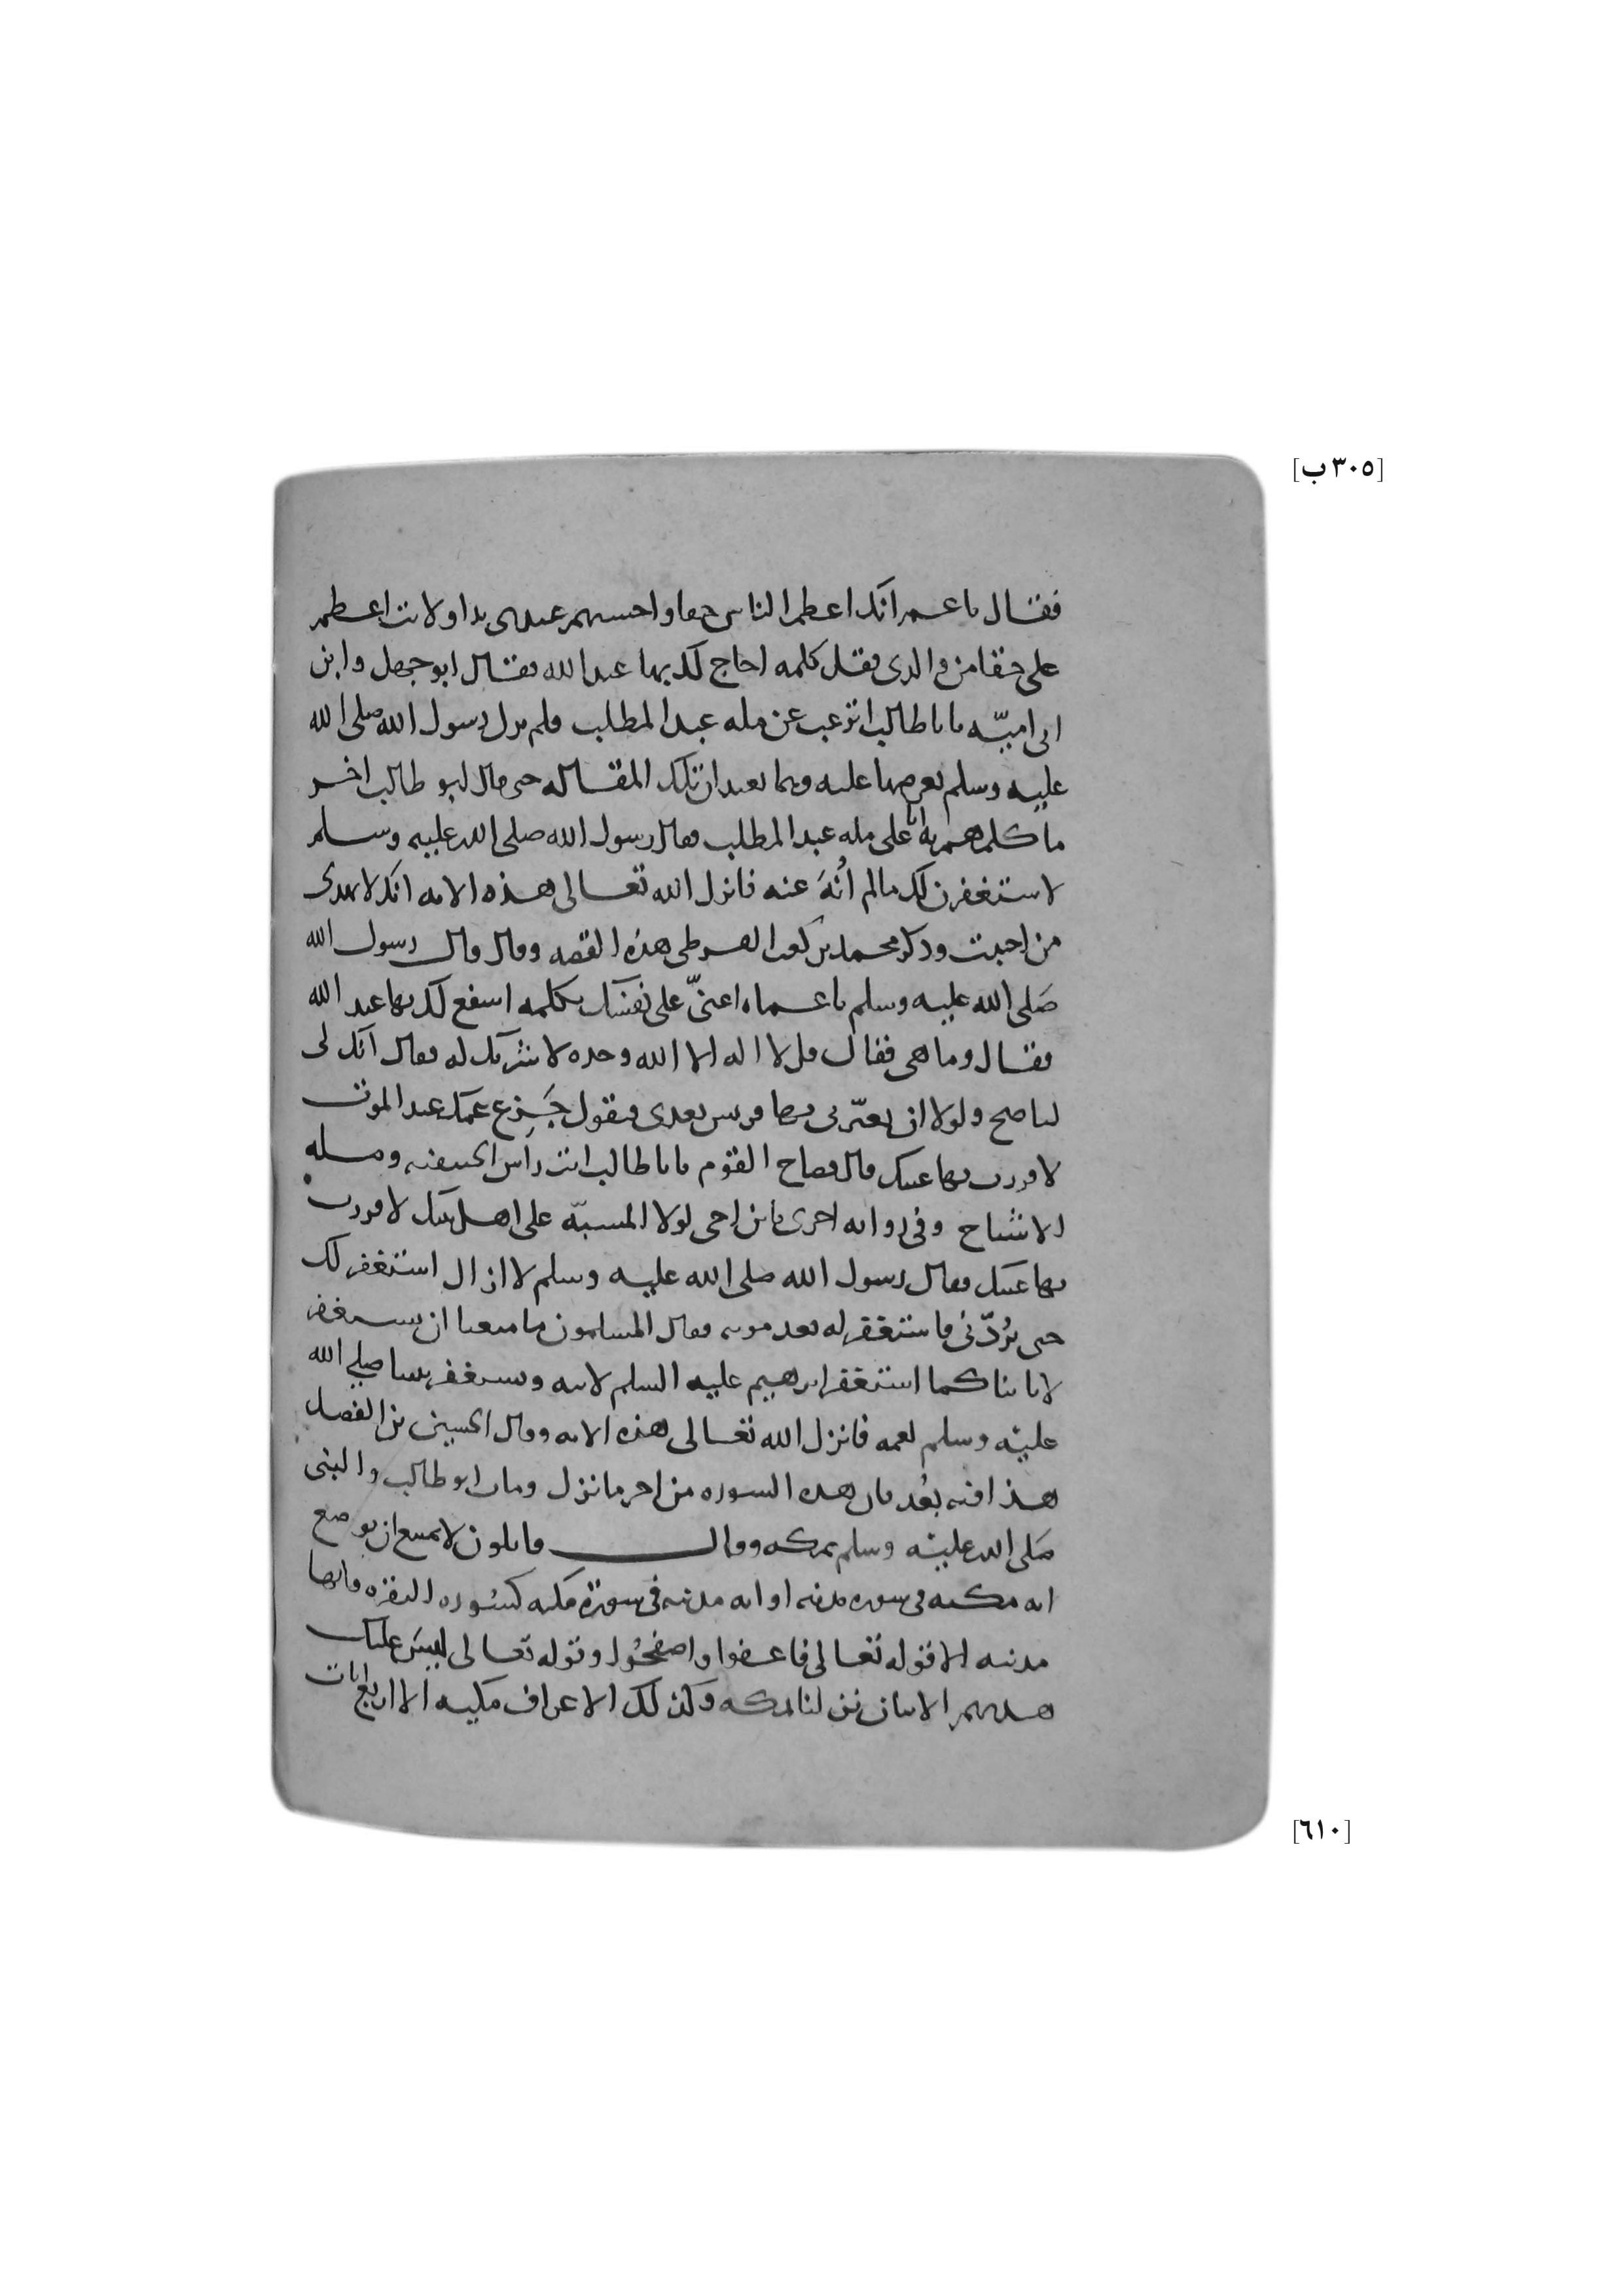 [٣٠٥ ب]
فقال يا عم انك اعظم الناس حقا واحسنهم عندى يدا ولانت اعظم
على حقا من والدى فقل كلمه احاج لك بها عند الله فقال ابو جهل وابن
ابى اميّه يا با طالب اترغب عن مله عبد المطلب فلم يزل رسول الله صلى الله
عليه وسلم يعرضها عليه وهما يعيدان تلك المقاله حتى قال ابو طالب اخر
ما كلمهم به انا على مله عبد المطلب فقال رسول الله صلى الله عليه وسلم
لاستغفرن لك مالم أُنْهَ عنه فانزل الله تعالى هذه الايه انك لا تهدى
من احببت وذكر محمد بن كعب القرظى هذه القصه وقال قال رسول الله
صَلى الله عليه وسلم يا عماه اعنىّ على نفسك بكلمه اشفع لك بها عند الله
فقال وما هى فقال قل لا اله الا الله وحده لا شريك له فقال انك لى
لناصح ولولا ان يعيّرنى بها قريش بعدى فيقول جَزِع عمك عند الموت
لاقررت بها عينك قال فصاح القوم يا با طالب انت راس الحنيفيه ومله
الاشياخ وفى روايه اخرى يابن اخى لولا المسبّه على اهل بيتك لاقررت
بها عينك فقال رسول الله صلى الله عليه وسلم لا ازال استغفر لك
حتى يرُدّنى فاستغفر له بعد موته فقال المسلمون ما منعنا ان نستغفر
لابائنا كما استغفر ابرهيم عليه السلم لابيه ويستغفر نبينا صلى الله
عليه وسلم لعمه فانزل الله تعالى هذه الايه وقال الحسين بن الفضل
هذا فيه بُعد فان هذه السوره من اخر ما نزل ومات ابو طالب والنبى
صَلى الله عليه وسلم بمكه وقال قايلون لا يمتنع ان يوضع
ايه مكيه فى سوره مدنيه او ايه مدنيه فى سورة مكيه كسُوره البقره فانها
مدنيه الا قوله تعالى فاعفوا واصفحُوا وقوله تعالى ليسَ عليك
هديهم الايتان نزلنا بمكه وكذلك الاعراف مكيه الا اربع ايات
[٦١٠]